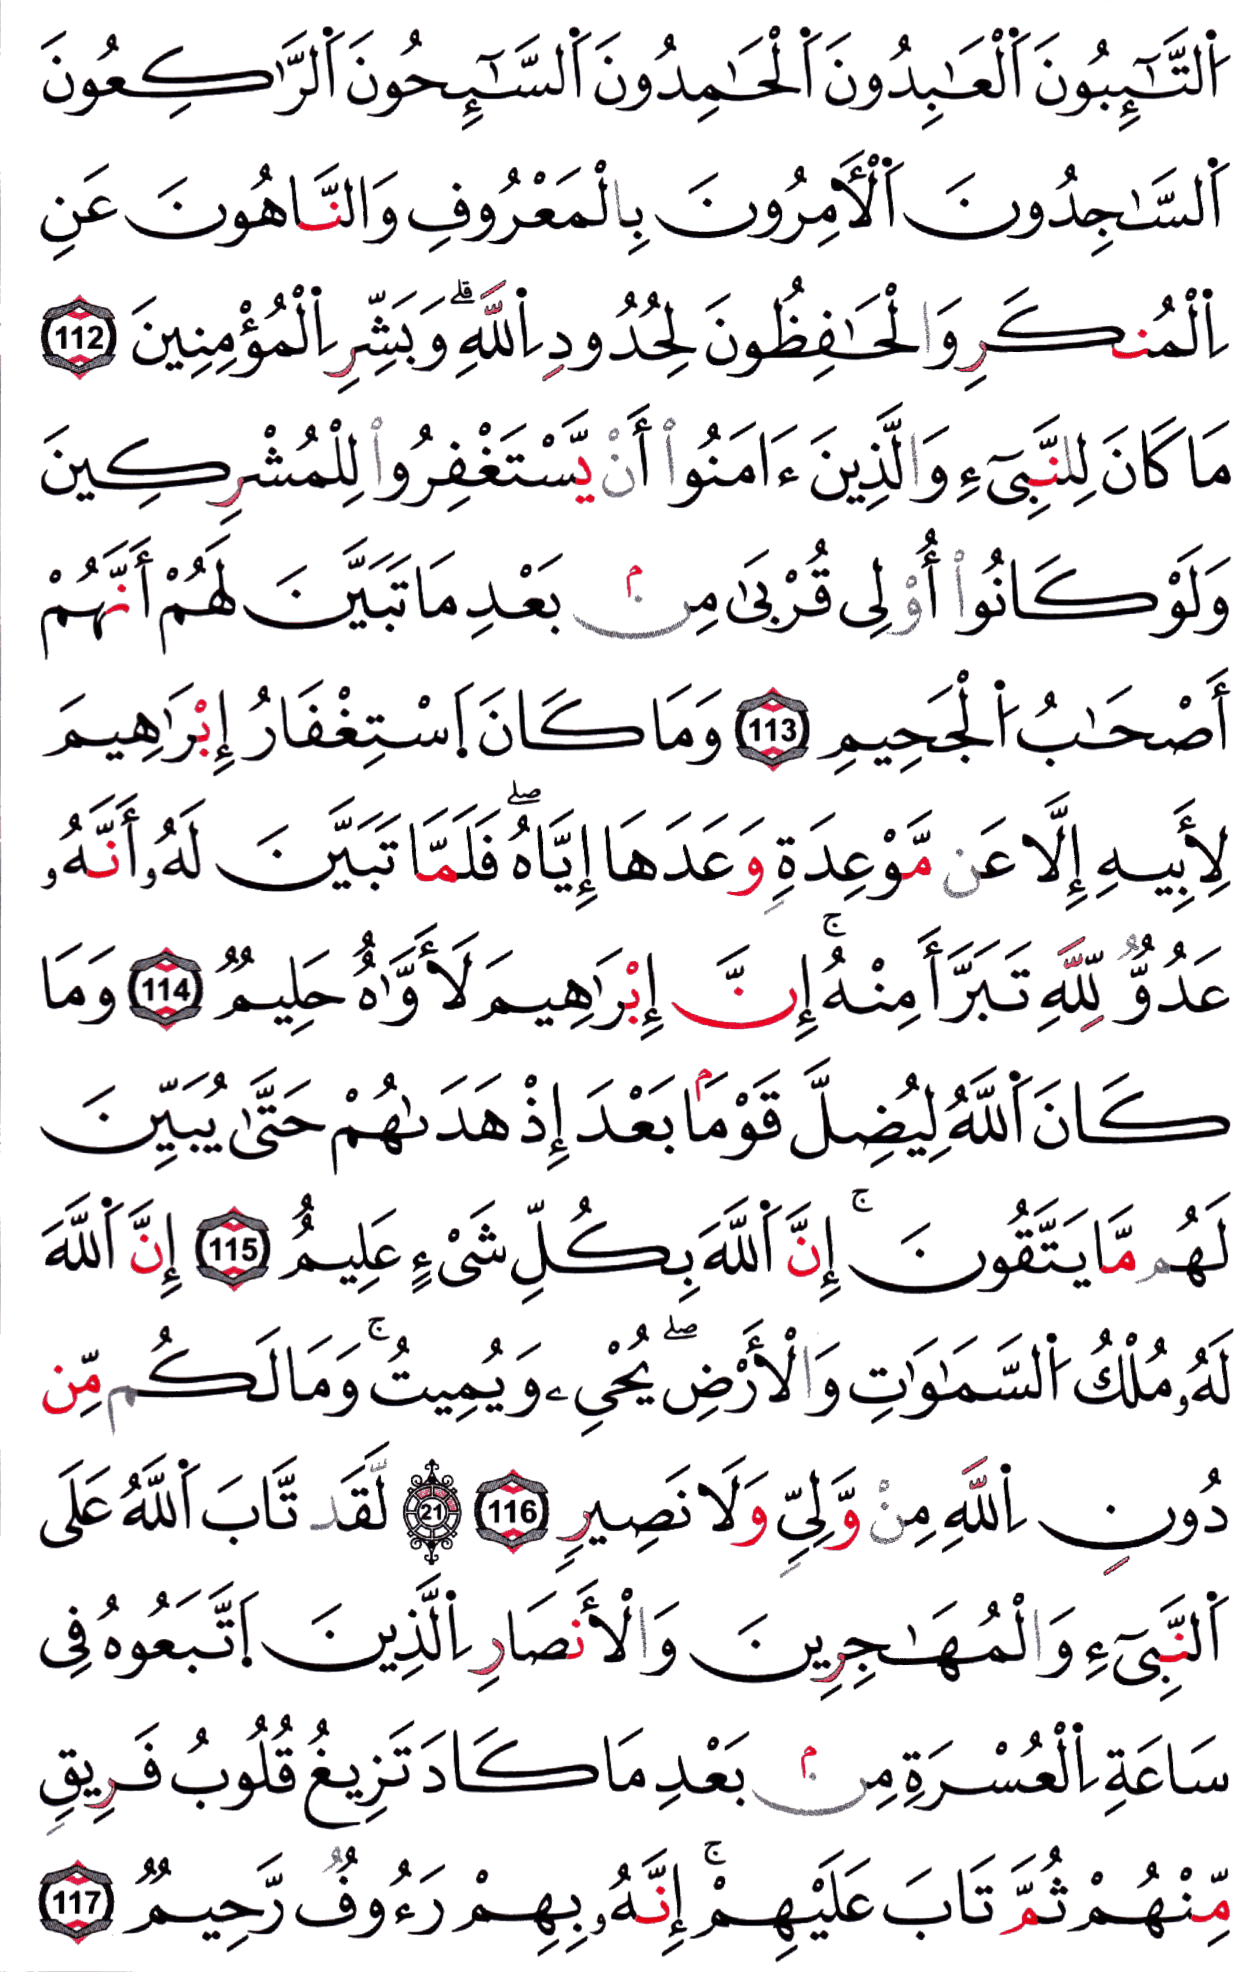 اَ۬لتَّٰٓئِبُونَ اَ۬لْعَٰبِدُونَ اَ۬لْحَٰمِدُونَ اَ۬لسَّٰٓئِحُونَ اَ۬لرَّٰكِعُونَ
اَ۬لسَّٰجِدُونَ اَ۬لْأٓمِرُونَ بِالْمَعْرُوفِ وَالنَّاهُونَ عَنِ
اِ۬لْمُنكَرِ وَالْحَٰفِظُونَ لِحُدُودِ اِ۬للَّهِۗ وَبَشِّرِ اِ۬لْمُؤْمِنِينَ 112
مَا كَانَ لِلنَّبِيٓءِ وَالَّذِينَ ءَامَنُواْ أَنْ يَّسْتَغْفِرُواْ لِلْمُشْرِكِينَ
وَلَوْ كَانُواْ أُوْلِي قُرْبَىٰ مِنۢ بَعْدِ مَا تَبَيَّنَ لَهُمْ أَنَّهُمْ
أَصْحَٰبُ اُ۬لْجَحِيمِ 113 وَمَا كَانَ اَ۪سْتِغْفَارُ إِبْرَٰهِيمَ
لِأَبِيهِ إِلَّا عَن مَّوْعِدَةٖ وَعَدَهَا إِيَّاهُۖ فَلَمَّا تَبَيَّنَ لَهُۥ أَنَّهُۥ
عَدُوّٞ لِّلَّهِ تَبَرَّأَ مِنْهُۚ إِنَّ إِبْرَٰهِيمَ لَأَوَّٰهٌ حَلِيمٞ 114 وَمَا
كَانَ اَ۬للَّهُ لِيُضِلَّ قَوْمَاۢ بَعْدَ إِذْ هَدَىٰهُمْ حَتَّىٰ يُبَيِّنَ
لَهُم مَّا يَتَّقُونَۚ إِنَّ اَ۬للَّهَ بِكُلِّ شَيْءٍ عَلِيمٌ 115 إِنَّ اَ۬للَّهَ
لَهُۥ مُلْكُ اُ۬لسَّمَٰوَٰتِ وَالْأَرْضِۖ يُحْيِۦ وَيُمِيتُۚ وَمَا لَكُم مِّن
دُونِ اِ۬للَّهِ مِنْ وَّلِيّٖ وَلَا نَصِيرٖ 116 21 لَّقَد تَّابَ اَ۬للَّهُ عَلَى
اَ۬لنَّبِيٓءِ وَالْمُهَٰجِرِينَ وَالْأَنصَارِ اِ۬لَّذِينَ اَ۪تَّبَعُوهُ فِي
سَاعَةِ اِ۬لْعُسْرَةِ مِنۢ بَعْدِ مَا كَادَ تَزِيغُ قُلُوبُ فَرِيقٖ
مِّنْهُمْ ثُمَّ تَابَ عَلَيْهِمْۚ إِنَّهُۥ بِهِمْ رَءُوفٞ رَّحِيمٞ 117